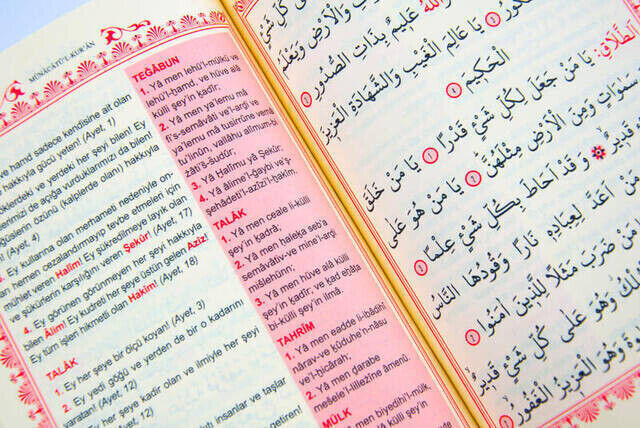 MÜNÂCÂTÜ'L-KUR'ÂN
ve hamd sadece kendisine ait olan
hakkıyla gücü yeten! (Ayet, 1)
klerdeki ve yerdeki her şeyi bilen! Ey
erimizi de açığa vurduklarımızı da bilen!
ğüslerin özünü (kalplerde olanı) hakkıyla
(Ayet, 4)
3. Ey kullarına olan merhameti nedeniyle on-
ları hemen cezalandırmayıp tevbe etmeleri için
mühlet veren Halîm! Ey şükredilmeye layık olan
ve şükürlerin karşılığını veren Şekûr! (Ayet, 17)
4. Ey görünen görünmeyen her şeyi hakkıyla
bilen Âlim! Ey kudreti her şeye üstün gelen Azîz!
Ey tüm işleri hikmetli olan Hakîm! (Ayet, 18)
TALÂK
1. Ey her şeye bir ölçü koyan! (Ayet, 3)
2. Ey yedi göğü ve yerden de bir o kadarını
yaratan! (Ayet, 12)
Ey her şeye kadir olan ve ilmiyle her şeyi
(Ayet, 12)
insanlar ve taşlar
TEĞÂBUN
1. Yâ men lehü'l-mülkü ve
lehü'l-hamd, ve hüve alâ
külli şey'in kadîr;
2. Yâ men ya'lemu mâ
fi's-semâvâti ve'l-arği ve
ya'lemu mâ tusirrûne vemâ
tu'linûn, vallâhu alîmum-bi-
zâti's-ŝudûr;
3. Yâ Halîmu yâ Şekûr;
4. Yâ âlime'l-ğaybi ve'ş-
şehâdeti'l-azîzi'l-hakîm.
TALÂK
1. Yâ men ceale li-külli
şey'in kadrâ;
2. Yâ men haleka seb'a
semâvâtiv-ve mine'l-arği
mišlehünn;
3. Yâ men hüve alâ külli
şey'in kadîr; ve kad ehâta
bi-külli şey'in ilmâ.
TAHRÎM
1. Yâ men eadde li-ibâdihî
nârav-ve kûduhe'n-nâsu
ve'l-hicârah;
2. Yâ men đarabe
mešele'l-lillezîne âmenû.
MÜLK
men biyedihi'l-mülk,
külli şey'in
وَالْأَرْضِ وَيَعْلَمُ
اللّٰهُ عَلِيمٌ بِذَاتِ الصُّدُورِ
يَا عَالِمَ الْغَيْبِ وَالشَّهَادَةِ الْعَزِيزُ
الْحَكِيمُ
الطَّلَاقِ: يَا مَنْ جَعَلَ لِكُلِّ شَيْءٍ قَدْرًا يَا مَنْ خَلَقَ
سَمٰوَاتٍ وَمِنَ الْأَرْضِ مِثْلَهُنَّ يَا مَنْ هُوَ عَلٰى
قَدِيرٌ وَقَدْ اَحَاطَ بِكُلِّ شَيْءٍ عِلْمًا
مَنْ اَعَدَّ لِعِبَادِهِ نَارًا وَقُودُهَا النَّاسُ
مَنْ ضَرَبَ مَثَلًا لِلَّذِينَ اٰمَنُوا
وَهُوَ عَلٰى كُلِّ شَيْءٍ قَدِيرٌ
وَهُوَ الْعَزِيزُ الْغَفُورُ